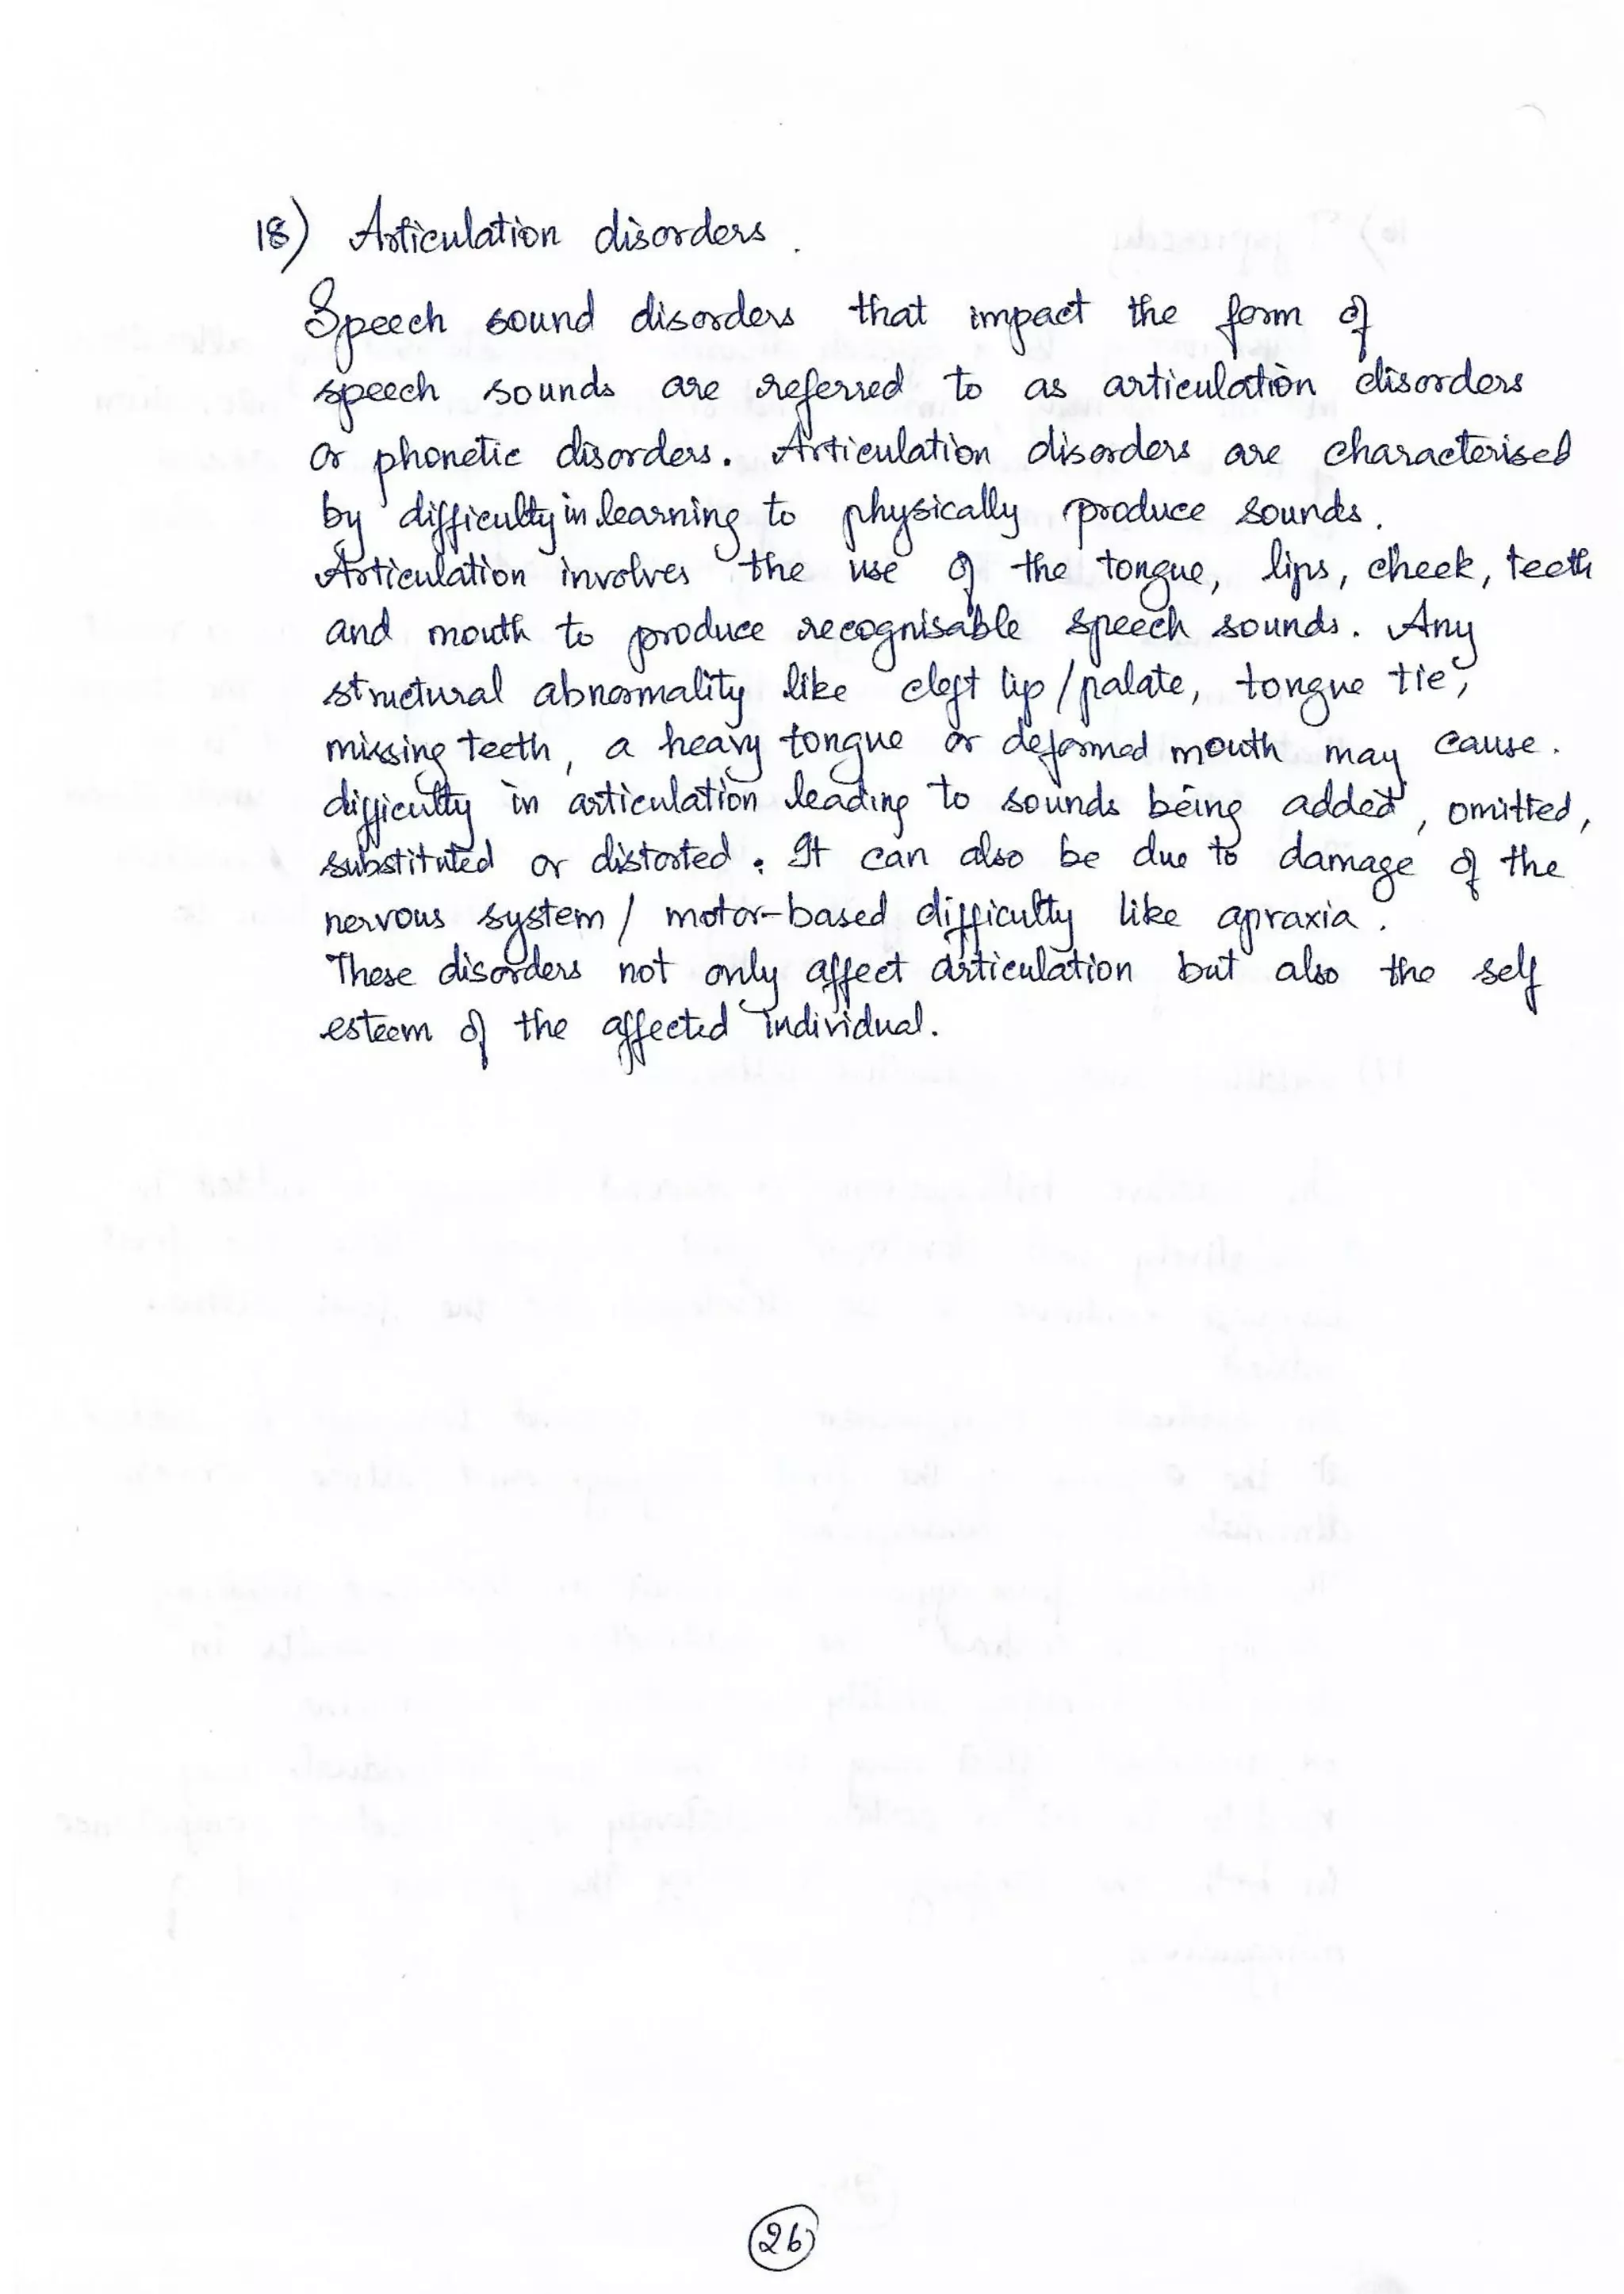 18) Articulation disorders.
Speech sound disorders that impact the form of
speech sounds are referred to as articulation disorders
or phonetic disorders. Articulation disorders are characterised
by difficulty in learning to physically produce sounds.
Articulation involves the use of the tongue, lips, cheek, teeth
and mouth to produce recognisable speech sounds. Any
structural abnormality like cleft lip/palate, tongue tie,
missing teeth, a heavy tongue or deformed mouth may cause.
difficulty in articulation leading to sounds being added, omitted,
substituted or distorted. It can also be due to damage of the
nervous system/ motor-based difficulty like apraxia.
These disorders not only affect articulation but also the self
esteem of the affected individual.
26